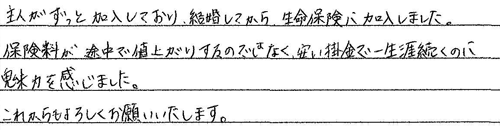 主人がずっと加入しており、結婚してから、生命保険に加入しました。
保険料が途中で値上がりするのではなく、安い掛金で一生涯続くのに
魅力を感じました。
これからもよろしくお願いいたします。